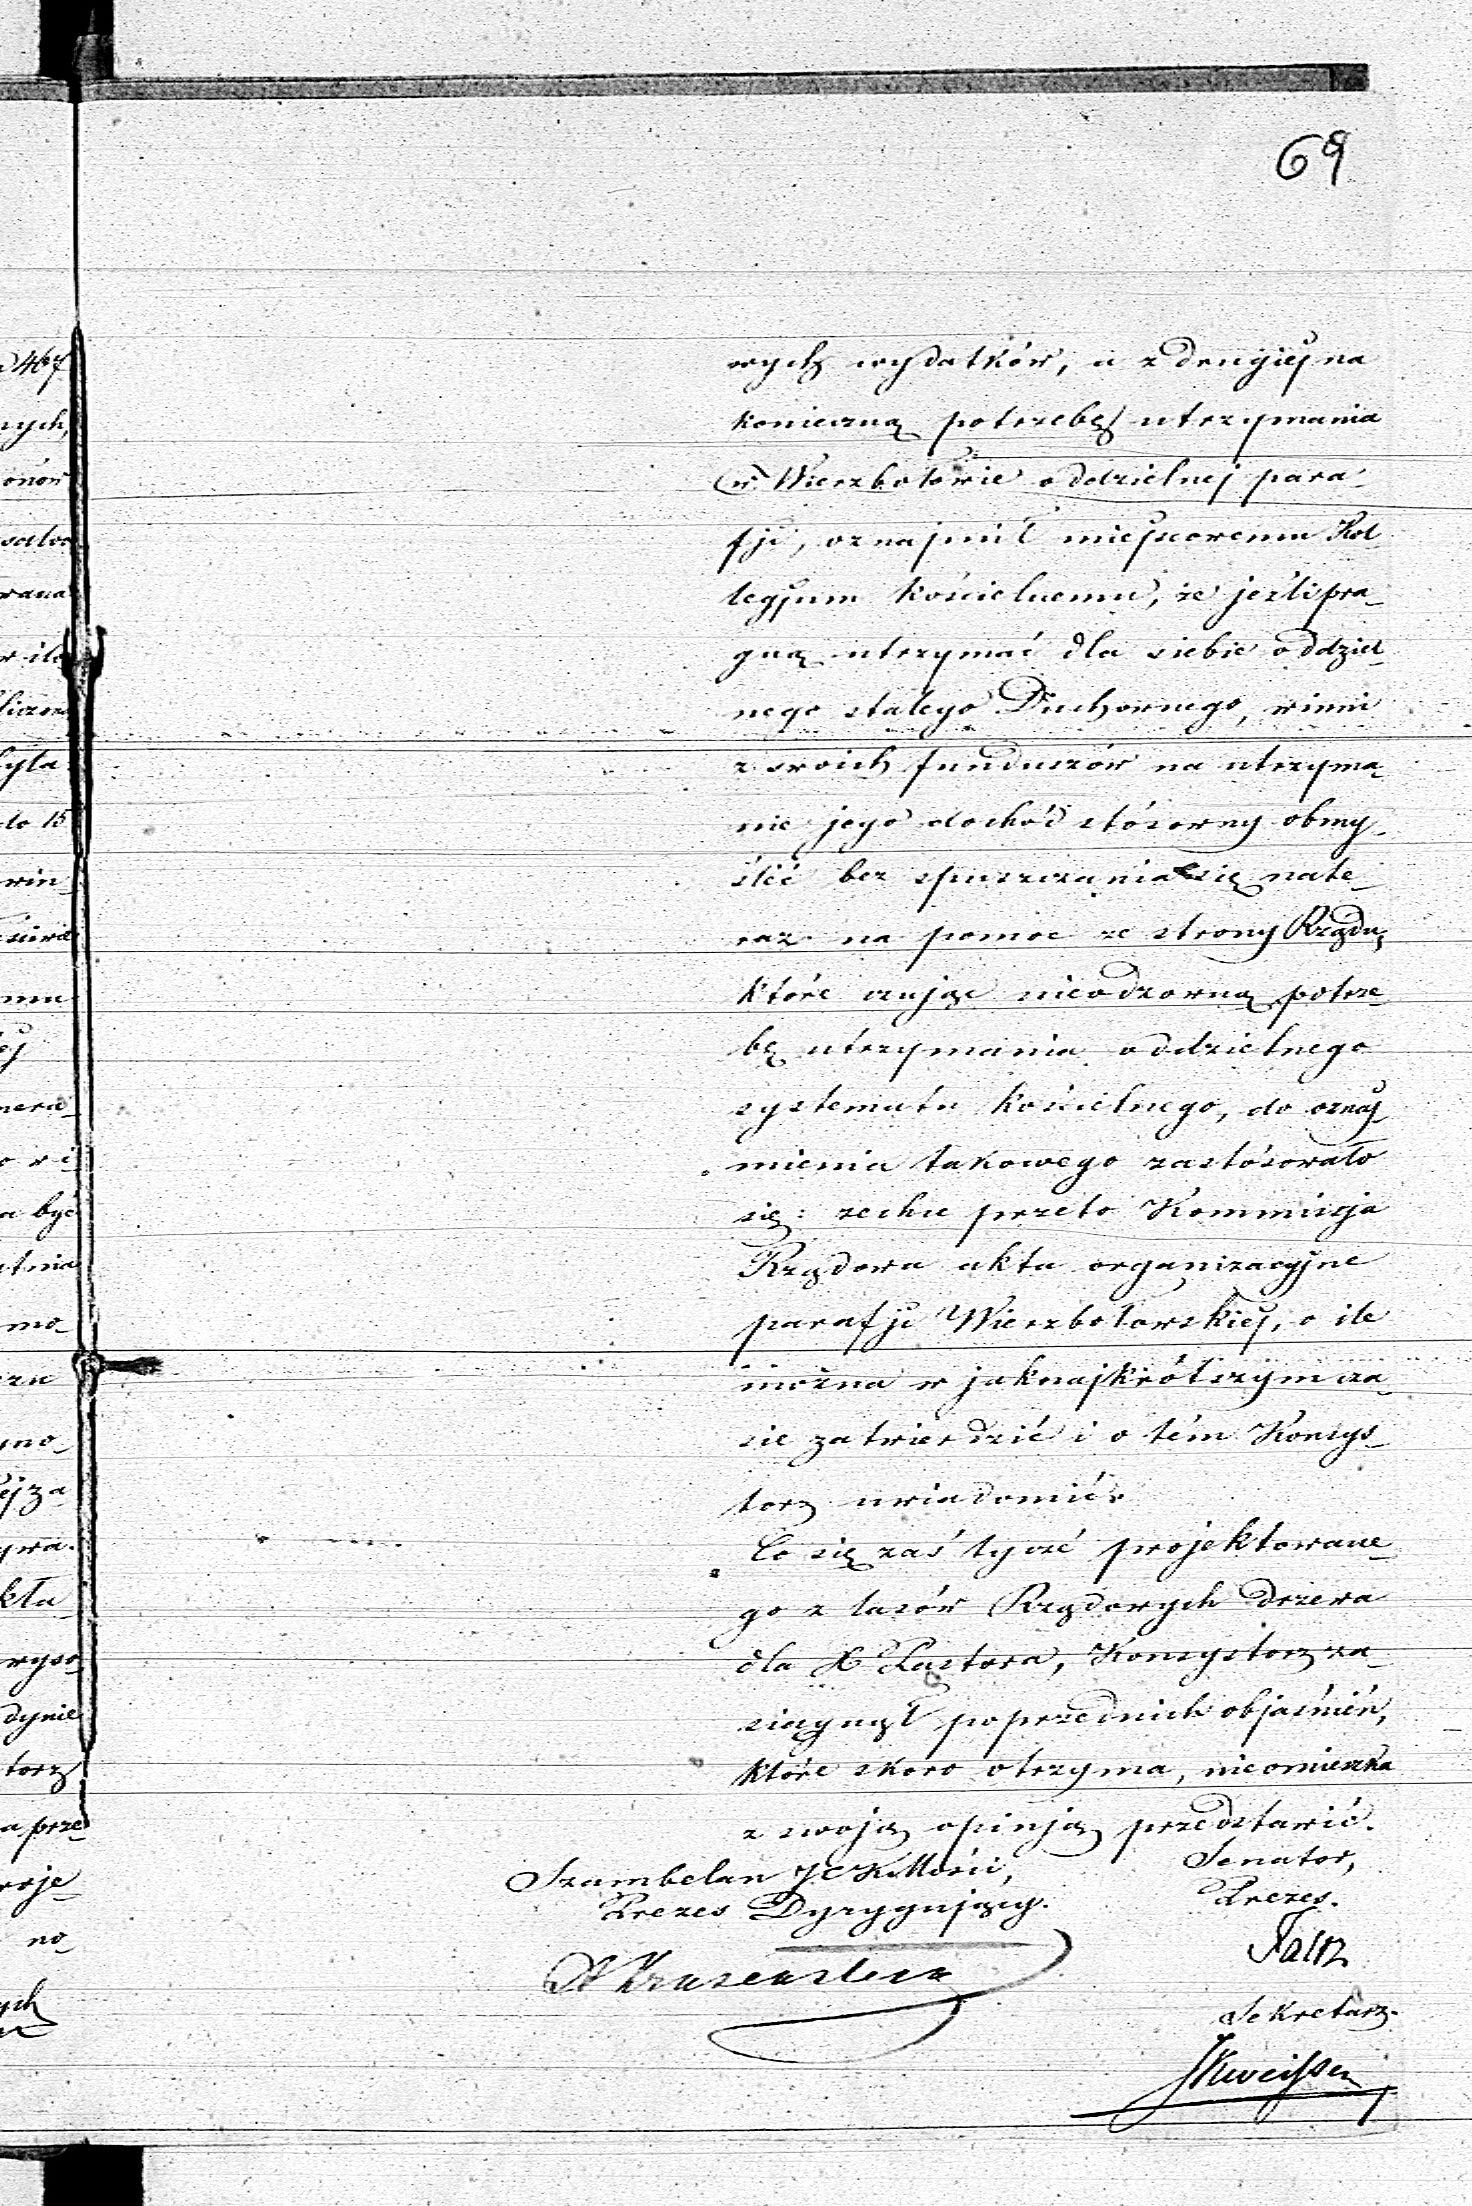 69
wych wydatków, a z drugiéj na
konieczną potrzebę utrzymania
w Wierzbołowie oddzielnej para-
fji, oznajmił miejscowemu Kol
legjum kościelnemu, że jeźli pra-
gną utrzymać dla siebie oddziel-
nego stałego Duchownego, winni
z swoich funduszów na utrzyma-
nie jego dochód stósowny obmy-
ślić bez spuszczania się nate-
raz na pomoc ze strony Rządu,
które czując nieodzowną potrze-
bę utrzymania oddzielnego
systematu kościelnego, do oznaj-
mienia takowego zastósowało
się: zechce przeto Kommissja
Rządowa akta organizacyjne
parafji Wierzbołowskiéj, o ile
można w jaknajkrótszym cza-
sie zatwierdzić i o tém Konsys-
torz uwiadomić.
Co się zaś tycze projektowane-
go z lasów Rządowych drzewa
dla X Pastora, Konsystorz za-
siągnął poprzednich objaśnień,
które skoro otrzyma, nieomieszka
z swoją opinją przedstawić.
Szambelan JCKMości,
Prezes Dyrygujący.
Senator,
Prezes.
Sekretarz.
ych,
wana
lyta
do 15
win-
mu
nera-
a być
mo-
mno-
ywa.
wyso-
dynie
torz
a prze-
woje-
no-
ych